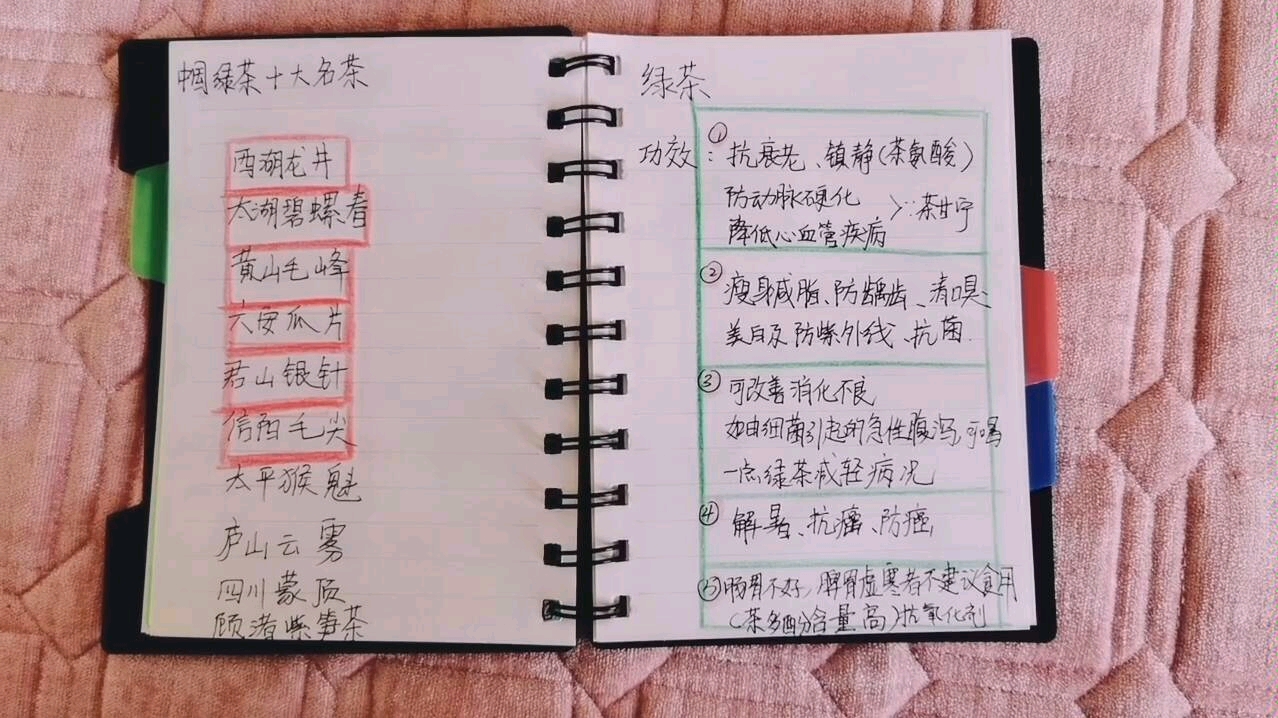 中国绿茶十大名茶
西湖龙井
太湖碧螺春
黄山毛峰
六安瓜片
君山银针
信阳毛尖
太平猴魁
庐山云雾
四川蒙顶
顾渚紫笋茶
绿茶
功效：①抗衰老、镇静（茶氨酸）
防动脉硬化
降低心血管疾病
＞∵茶甘宁
②瘦身减脂、防龋齿、清口臭
美白及防紫外线、抗菌.
③可改善消化不良
如由细菌引起的急性腹泻，可喝
一点绿茶减轻病况
④解暑、抗癌、防癌，
⑤肠胃不好，脾胃虚寒者不建议食用
（茶多酚含量高）抗氧化剂